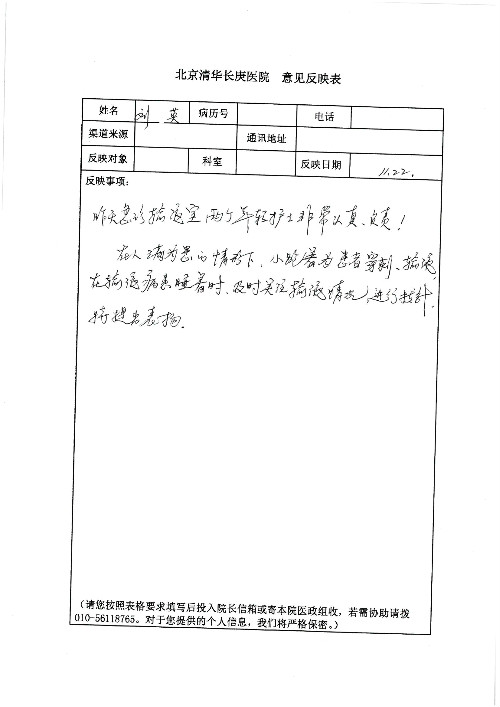 北京清华长庚医院 意见反映表
姓名 刘英 病历号 电话
渠道来源 通讯地址
反映对象 科室 反映日期 11.22.
反映事项：
昨天急诊输液室两个年轻护士非常认真、负责！
在人满为患的情形下，小跑着为患者穿刺、输液，
在输液病患睡着时，及时关注输液情况，进行拔针，
特提出表扬。
（请您按照表格要求填写后投入院长信箱或寄本院医政组收，若需协助请拨
010-56118765。对于您提供的个人信息，我们将严格保密。）